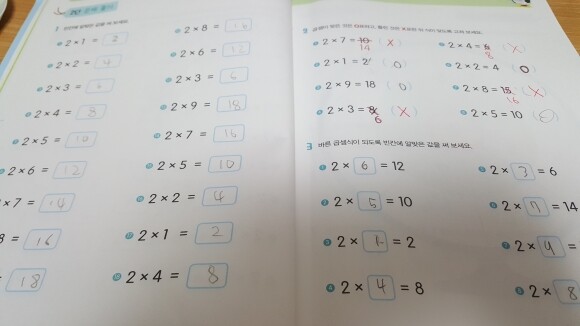 2 × 1 = 2
2 × 2 = 4
2 × 3 = 6
2 × 4 = 8
2 × 5 = 10
2 × 6 = 12
× 7 = 14
= 16
18
2 × 8 = 16
2 × 6 = 12
2 × 3 = 6
2 × 9 = 18
2 × 7 =
2 × 5 = 10
2 × 2 = 4
2 × 1 = 2
2 × 4 = 8
2
2 × 7 = 10 (X)
14
2 × 1 = 2 (O)
2 × 9 = 18 (O)
2 × 3 = 8 (X)
6
2 × 4 = 6 (X)
8
2 × 2 = 4 (O)
2 × 8 = 15 (X)
16
2 × 5 = 10 (O)
3 바른 곱셈식이 되도록 빈칸에 알맞은 값을 써 보세요.
2 × 6 = 12
2 × 5 = 10
2 × 1 = 2
2 × 4 = 8
2 × 3 = 6
2 × 7 = 14
2 × 9 =
2 × 8